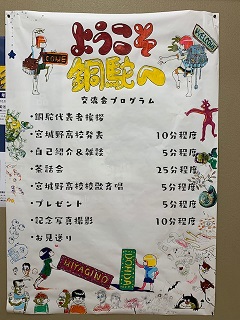 ようこそ
銅駝へ
WELCOME
COME
交流会プログラム
・銅駝代表者挨拶
・宮城野高校発表 10分程度
・自己紹介&雑談 5分程度
・茶話会 25分程度
・宮城野高校校歌斉唱 5分程度
・プレゼント 5分程度
・記念写真撮影 10分程度
・お見送り
MIYAGINO
DOHDA